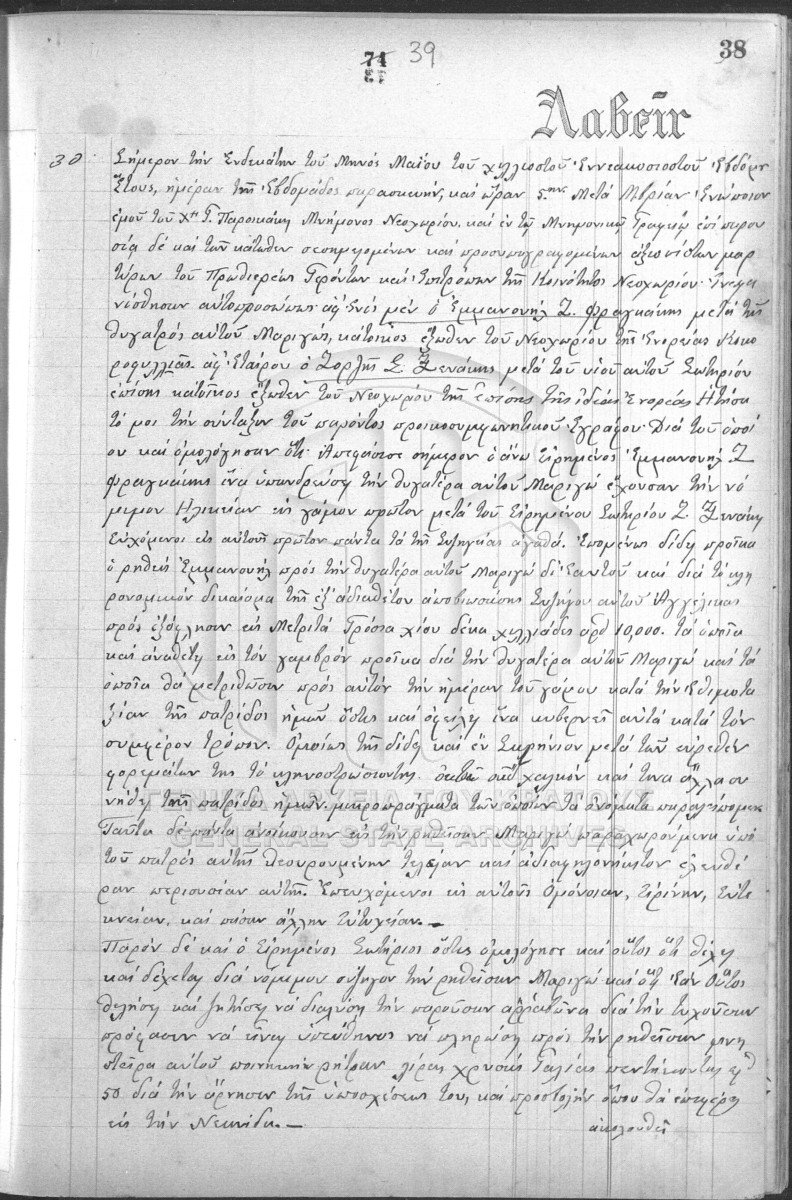 74 39 38
ΕΓ
Λαβεῖν
30. Σήμερον τὴν Ἑνδεκάτην τοῦ Μηνός Μαΐου τοῦ χιλλιοστοῦ Ἐννεακοσιοστοῦ Ἑβδόμου
Ἔτους, ἡμέραν τῆς Ἑβδομάδος παρασκευήν, καὶ ὥραν 5.ην Μετά Μβρίαν Ἐνώπιον
ἐμοῦ τοῦ Χη Γ. Παροικάκη Μνήμονος Νεοχωρίου. καὶ ἐν τῷ Μνημονικῷ Γραφείῳ ἐπὶ παρου
σίᾳ δέ καὶ τῶν κάτωθεν σεσημειομένων καὶ προσυπογραφομένων ἀξιοπίστων μαρ
τύρων τοῦ Πρωθιερέως Γερόντων καὶ Ἐπιτρόπων τῆς Κοινότητος Νεοχωρίου. Ἐνεφα
νίσθησαν αὐτοπροσώπως ἀφ' ἑνός μέν ὁ Ἐμμανουήλ Ζ. Φραγκάκης μετά τῆς
θυγατρός αὐτοῦ Μαριγῶς, κάτοικος ἔξωθεν τοῦ Νεοχωρίου τῆς Ἐνορίας Κοκο
ροφυλλιᾶς. ἀφ' ἑταίρου ὁ Ζορζῆς Σ. Ξενάκης μετά τοῦ υἱοῦ αὐτοῦ Σωτηρίου
ἐπίσης κάτοικος ἔξωθεν τοῦ Νεοχωρίου τῆς ἐπίσης τῆς ἰδίας Ἐνορίας Ἠτήσα
τό μοι τὴν σύνταξιν τοῦ παρόντος προικοσυμφωνητικοῦ Ἐγγράφου. Διά τοῦ ὁποί
ου καὶ ὁμολόγησαν ὅτι Ἀπεφάσισε σήμερον ὁ ἄνω Εἰρημένος Ἐμμανουήλ Ζ
Φραγκάκης ἵνα ὑπανδρεύσῃ τὴν θυγατέρα αὐτοῦ Μαριγώ ἔχουσαν τὴν νό
μιμον Ἡλικίαν εἰς γάμον πρῶτον μετά τοῦ Εἰρημένου Σωτηρίου Ζ. Ξενάκη
Εὐχόμενοι εἰς αὐτούς πρῶτον πάντα τά τῆς Συζηγίας ἀγαθά. Ἑπομένως δίδει προῖκα
ὁ ρηθείς Ἐμμανουήλ πρός τὴν θυγατέρα αὐτοῦ Μαριγώ δι' ἑαυτοῦ καὶ διά τό κλη
ρονομικόν δικαίωμα τῆς ἐξ' ἀδιαθέτου ἀποβιωσάσης Συζήγου αὐτοῦ Ἀγγέλικας
πρός ἐξόφλησιν εἰς Μετριτά Γρόσια χίου δέκα χιλλιάδες αρθ 10,000. τά ὁποῖα
καὶ ἀναθέτει εἰς τόν γαμβρόν προῖκα διά τὴν θυγατέρα αὐτοῦ Μαριγώ καὶ τά
ὁποῖα θά μετριθῶσιν πρός αὐτόν τὴν ἡμέραν τοῦ γάμου κατά τὴν Ἐθιμοτα
ξίαν τῆς πατρίδος ἡμῶν ὅστις καὶ ὀφείλει ἵνα κυβερνεῖ αὐτά κατά τόν
συμφέρον τρόπον. Ὁμοίως τῆς δίδει καὶ ἕν Σκρήνιον μετά τῶν εὑρεθέν
φορεμάτων της τό κληνοστρώσιον της χαλκόν καὶ τινα ἄλλα συ
νήθη τῆς πατρίδος ἡμῶν μικροπράγματα τῶν ὁποίων τά ὀνόματα παραλείπομεν
Ταῦτα δέ πάντα ἀνοίκουσιν εἰς τὴν ρηθεῖσαν Μαριγώ παραχωρούμενα ὑπό
τοῦ πατρός αὐτῆς θεουρουμένην τελείαν καὶ ἀδιαφιλονήκιτον ἐλευθέ
ραν περιουσίαν αὐτῆς. Ἐπευχόμενοι εἰς αὐτούς Ὁμόνοιαν, Εἰρίνην, Εὐτε
κνείαν, καὶ πᾶσαν ἄλλην Εὐτυχείαν. —
Παρόν δέ καὶ ὁ Εἰρημένος Σωτήριος ὅστις ὁμολόγησε καὶ οὗτος ὅτι θέλει
καὶ δέχεται διά νόμιμον σύζηγον τὴν ρηθεῖσαν Μαριγώ καὶ ὅτι ἐάν Οὗτος
θελήσῃ καὶ ζητήσῃ νά διαλύσῃ τὴν παροῦσαν ἀῤῥαβῶνα διά τὴν τυχοῦσαν
πρόφασιν νά εἶναι ὑπεύθηνος νά πληρώσῃ πρός τὴν ρηθεῖσαν μνη
στείρα αὐτοῦ ποινικήν ρήτραν λίρας χρυσᾶς Γαλίας πεντήκοντα αρθ
50 διά τὴν ἄρνησιν τῆς ὑποσχέσεώς του, καὶ προσβολήν ὅπου θά ἐπιφέρῃ
εἰς τὴν Νεάνιδα. — ἀκολουθεῖ
ΓΕΝΙΚΑ ΑΡΧΕΙΑ ΤΟΥ ΚΡΑΤΟΥΣ
GENERAL STATE ARCHIVES